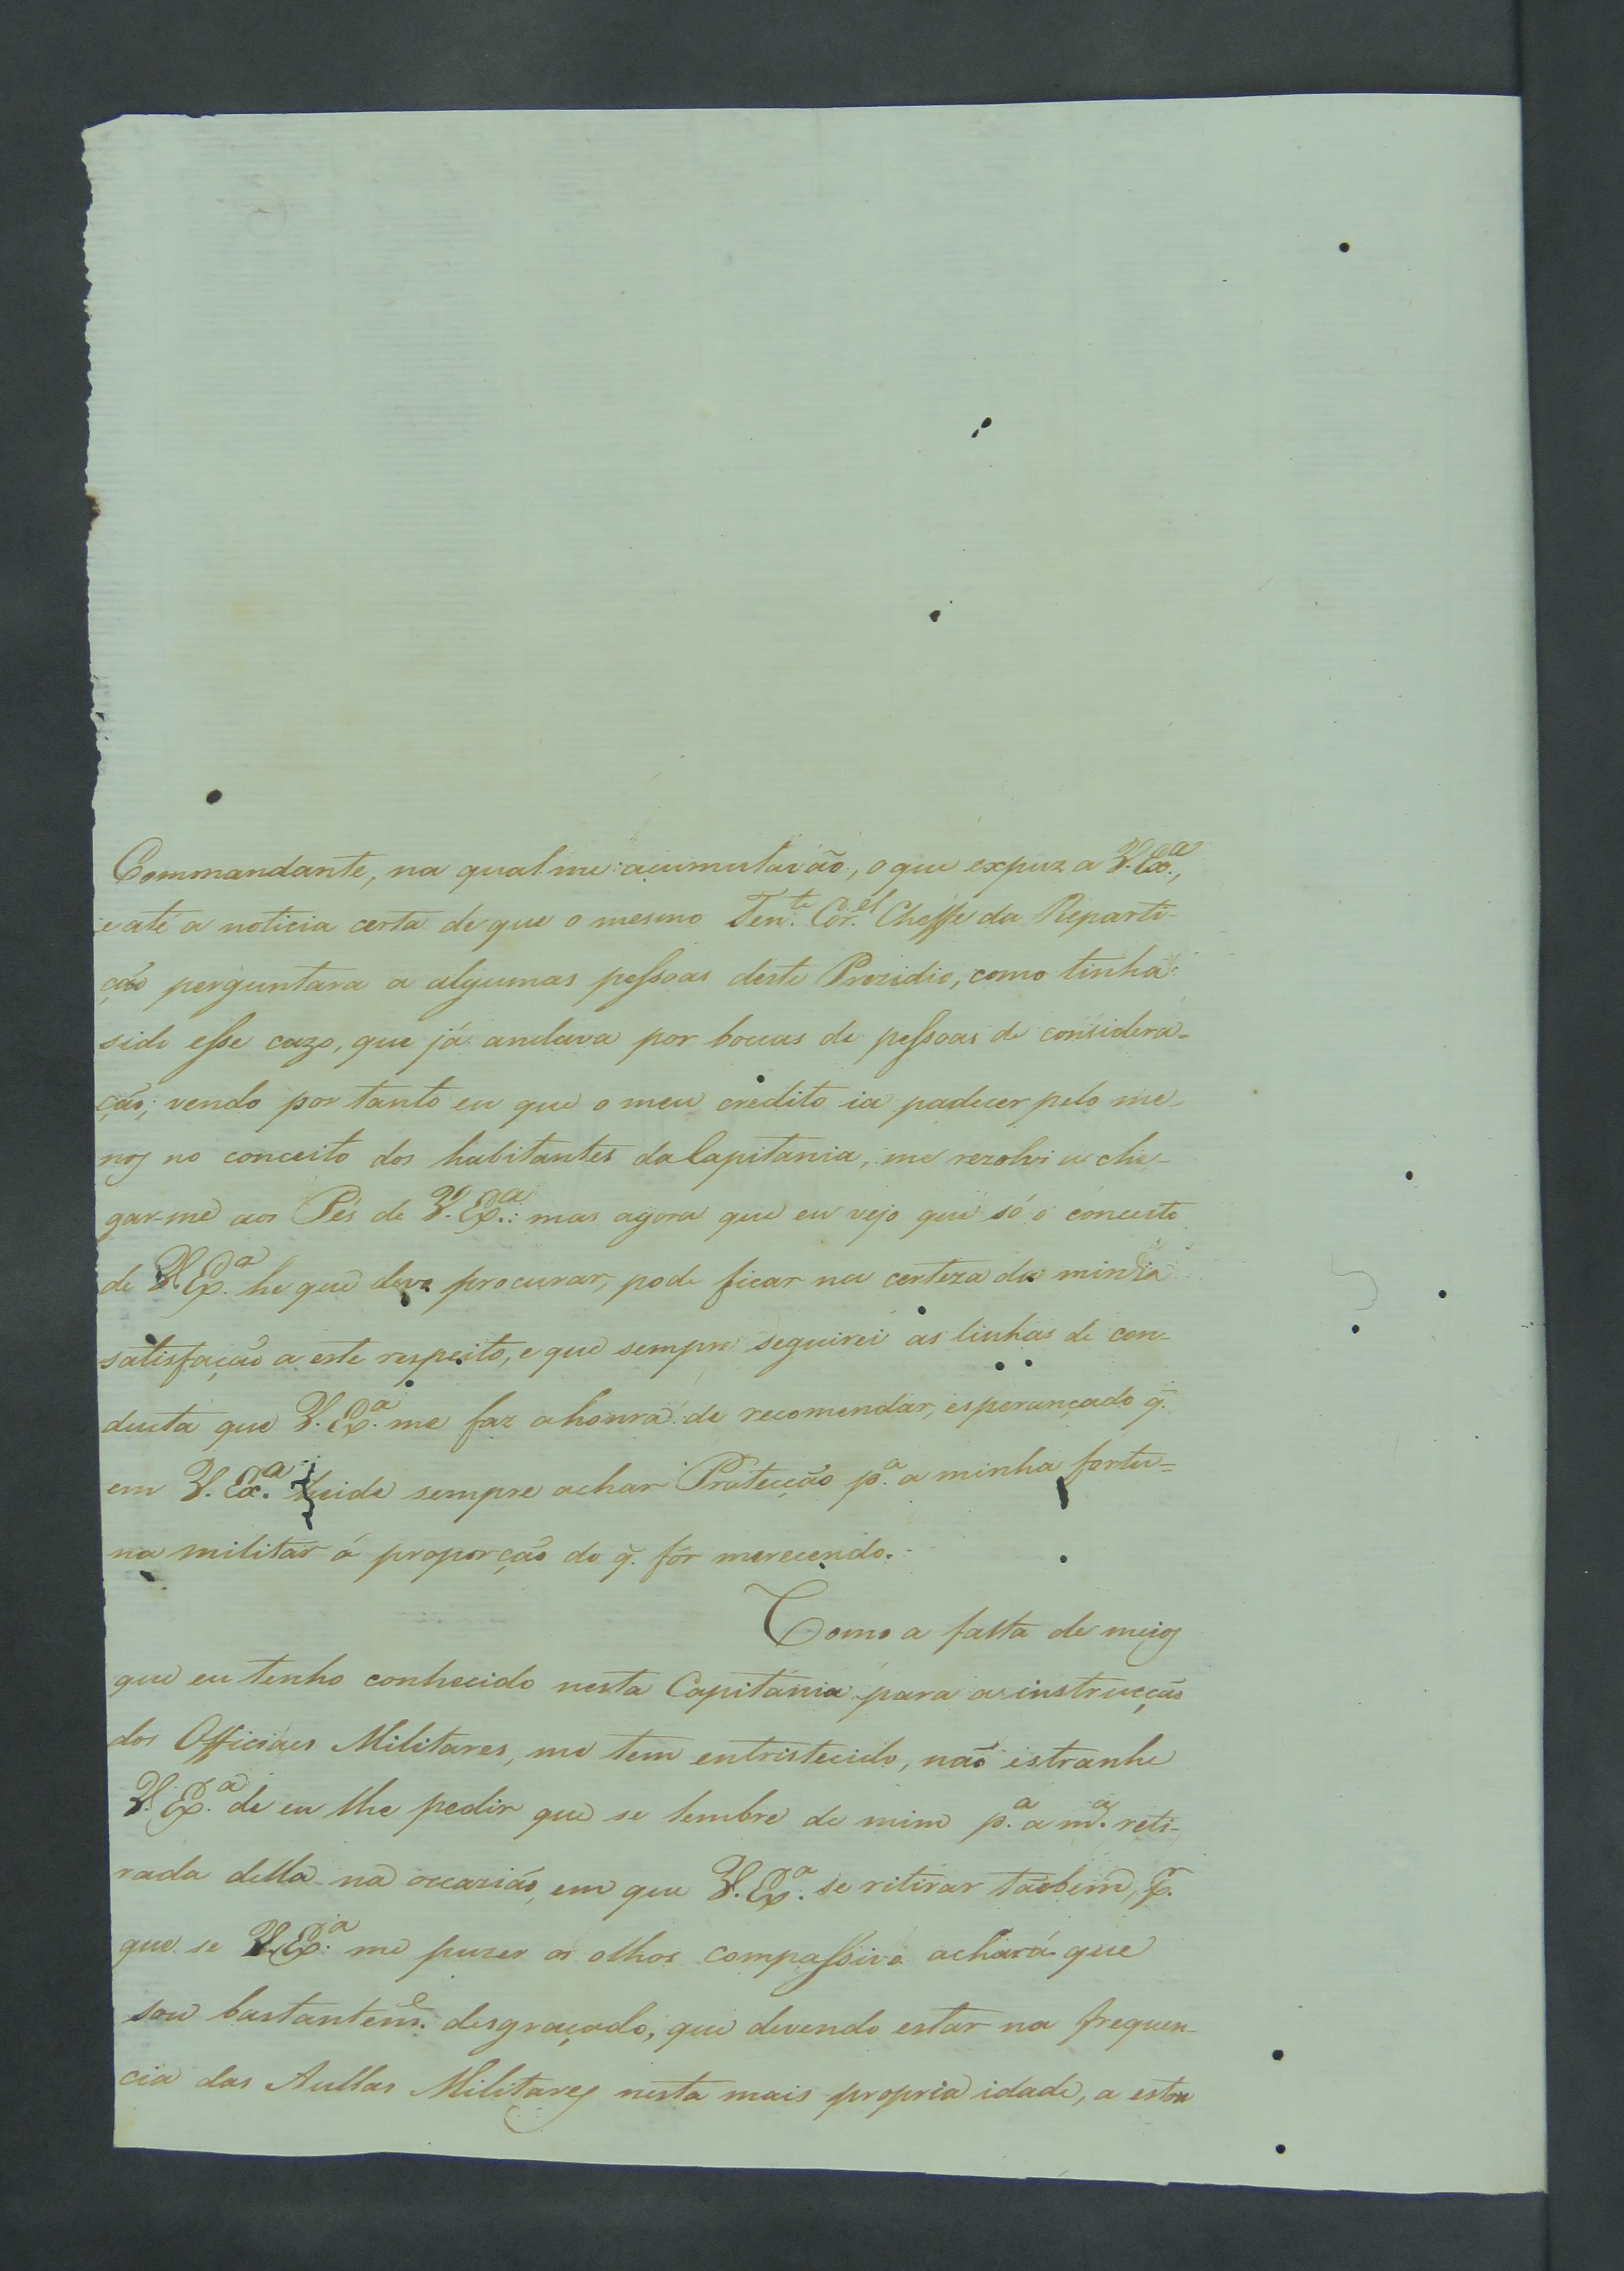 Commandante, na qual me acumulavão, o que expuz a V. Ex.ª,
e até a noticia certa de que o mesmo Ten.te Cor.el Cheffe da Reparti-
ção perguntara a algumas pessoas deste Prezidio, como tinha
sido esse cazo, que já andava por boccas de pessoas de considera-
ção; vendo por tanto eu que o meu credito ia padecer pelo me-
nos no conceito dos habitantes da Capitania, me rezolvi a che-
gar-me aos Pés de V. Ex.ª: mas agora que eu vejo que só o conceito
de V. Ex.ª he que devo procurar, pode ficar na certeza da minha
satisfação a este respeito, e que sempre seguirei as linhas de con-
ducta que V. Ex.ª me faz a honra de recomendar, esperançado q̃.
em V. Ex.ª heide sempre achar Protecção p.ª a minha fortu-
na militar á proporção do q̃. fôr merecendo.
Como a falta de meios
que eu tenho conhecido nesta Capitania para a instrucção
dos Officiaes Militares, me tem entristecido, não estranhe
V. Ex.ª de eu lhe pedir que se lembre de mim p.ª a m.ª reti-
rada della na occazião, em que V. Ex.ª se retirar tãobem, p.r
que se V. Ex.ª me puzer os olhos compassivo achará que
sou bastantem.e desgraçado, que devendo estar na frequen-
cia das Aullas Militares nesta mais propria idade, a estou